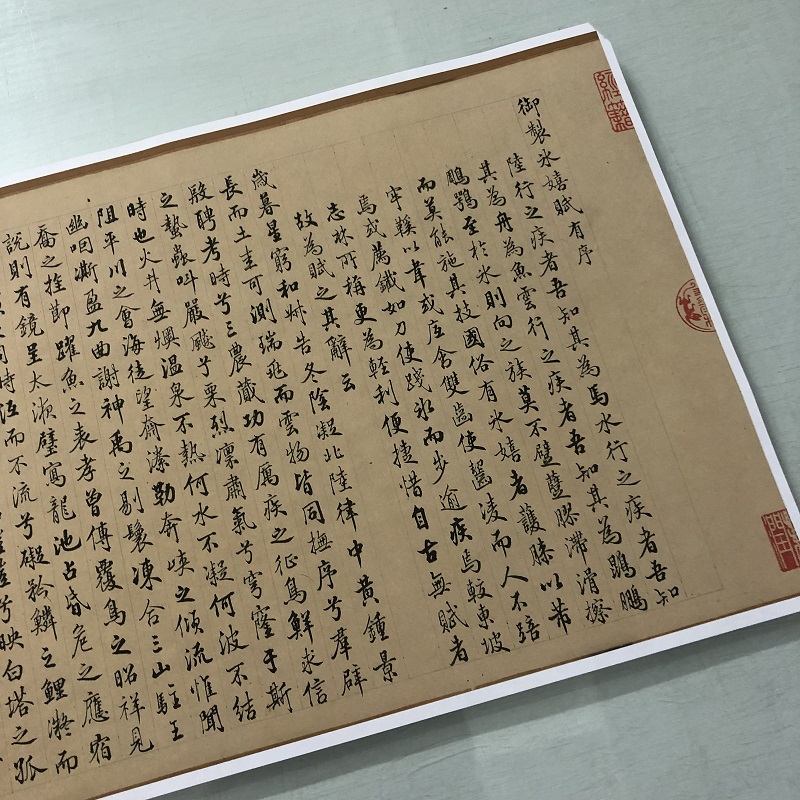 御製氷嬉賦有序
陸行之疾者吾知其為馬水行之疾者吾知
其為舟為魚雲行之疾者吾知其為鵾鵬
鵰鶚至於氷則向之族莫不躄躠膠滯滑擦
而莫能施其技國俗有氷嬉者護膝以芾
牢鞵以韋或底含雙齒使齧凌而人不踣
焉或薦鐵如刀使踐氷而步逾疾焉較東坡
志林所稱更為輕利便捷惜自古無賦者
故為賦之其辭云
歲暮星窮和艸告冬陰凝北陸律中黃鍾景
長而土圭可測瑞兆而雲物皆同撫序兮羣辟
殷聘考時兮三農蕆功有厲疾之征鳥鮮求信
之蟄蟲叫嚴飈兮栗烈凛肅氣兮穹窿于斯
時也火井無燠溫泉不熱何水不凝何波不結
阻平川之會海徒望齊潨勒奔峽之傾流惟聞
幽咽澌盈九曲謝神禹之剔鬟凍合三山駐王
喬之挂節躍魚之表孝曾傳覆鳥之昭祥見
說則有鏡呈太液璧寫龍池占昏危之應宿
同時沍而不流兮礙矜鱗之鯉凝而
兮映白塔之孤